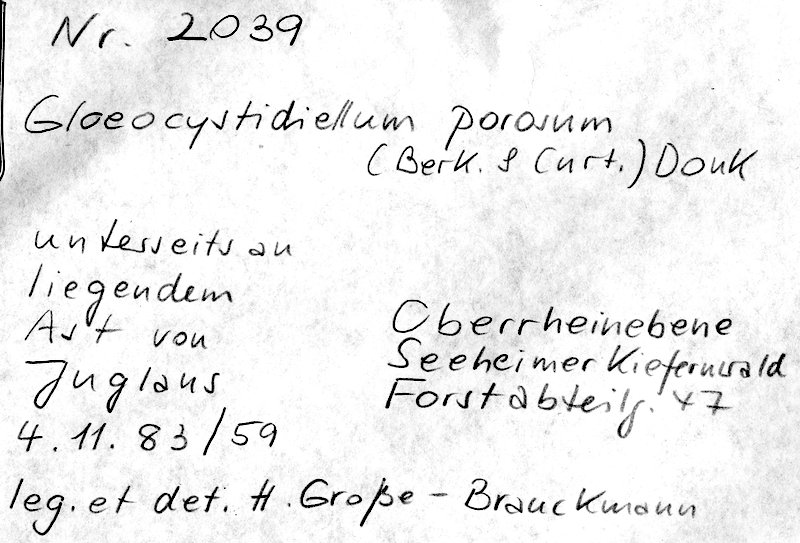 Nr. 2039
Gloeocystidiellum porosum
(Berk. & Curt.) Donk
unterseits an
liegendem
Ast von
Juglans
4.11.83/59
Oberrheinebene
Seeheimer Kiefernwald
Forstabteilg. 47
leg. et det. H. Große-Brauckmann